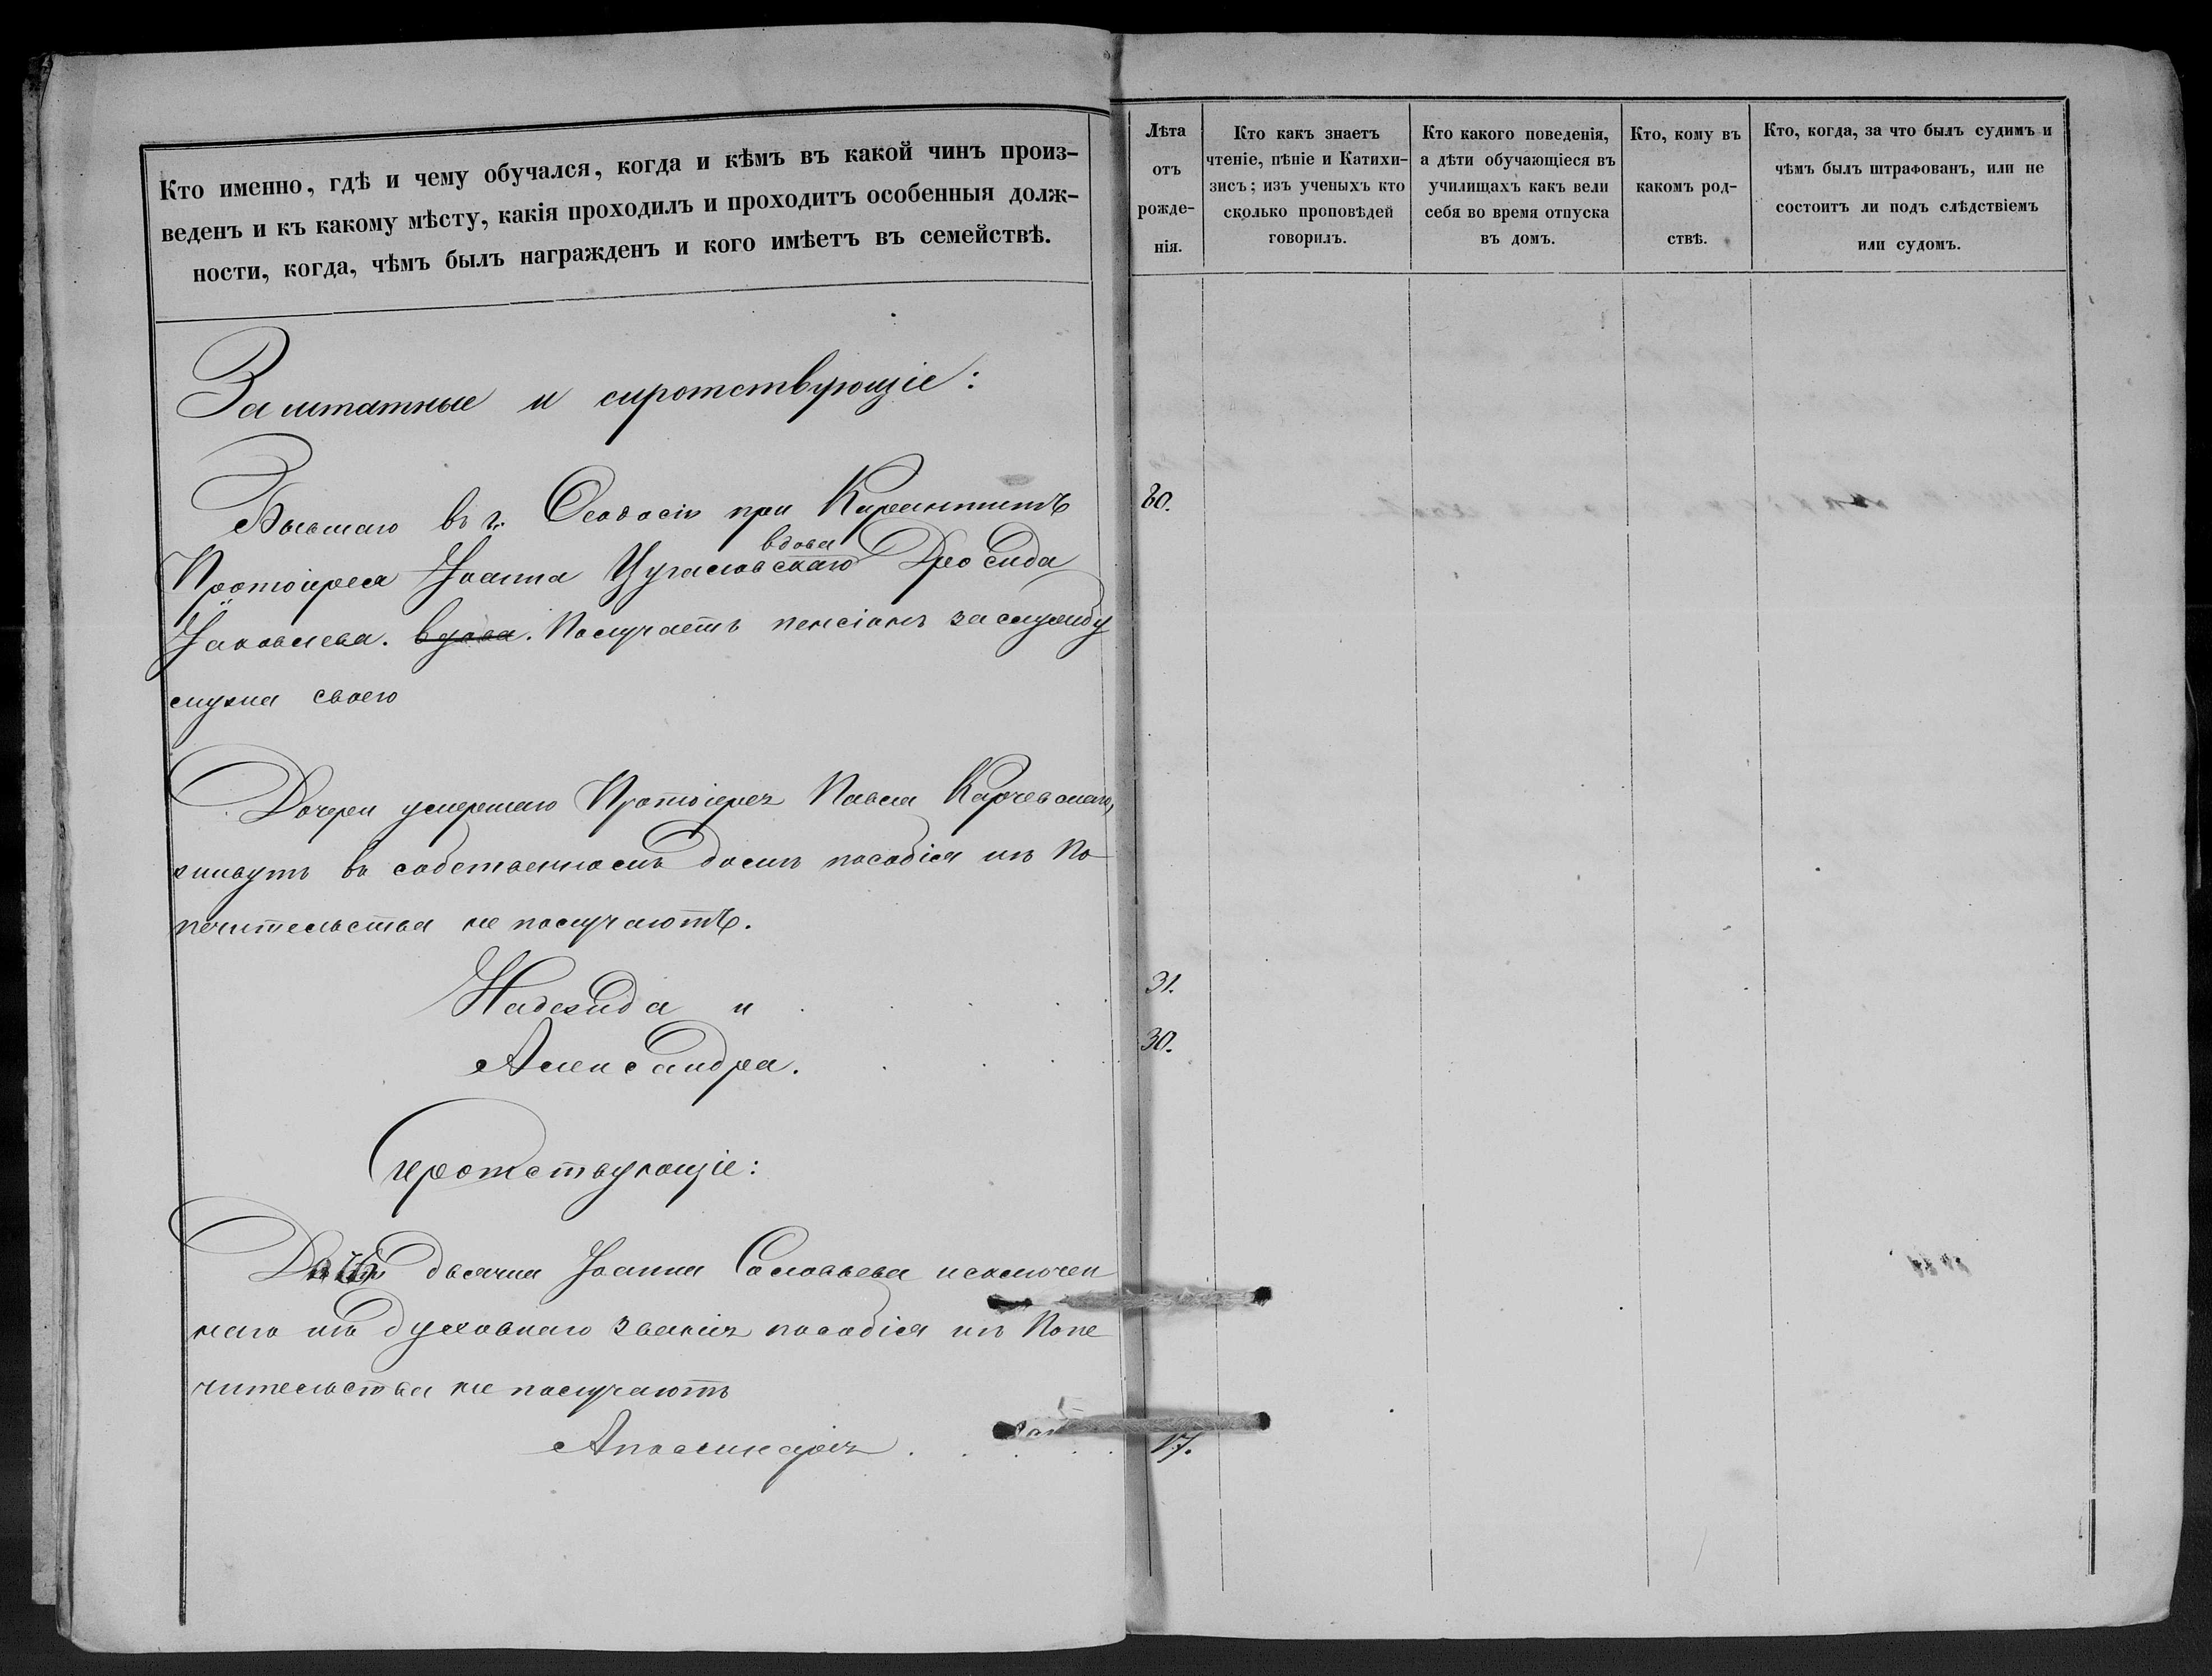 Кто именно, гдѣ и чему обучался, когда и кѣмъ въ какой чинъ произ-
веденъ и къ какому мѣсту, какія проходилъ и проходитъ особенныя долж-
ности, когда, чѣмъ былъ награжденъ и кого имѣетъ въ семействѣ.
Лѣта
отъ
рожде-
нія.
Кто какъ знаетъ
чтеніе, пѣніе и Катихи-
зисъ; изъ ученыхъ кто
сколько проповѣдей
говорилъ.
Кто какого поведенія,
а дѣти обучающіеся въ
училищахъ какъ вели
себя во время отпуска
въ домъ.
Кто, кому въ
какомъ род-
ствѣ.
Кто, когда, за что былъ судимъ и
чѣмъ былъ штрафованъ, или не
состоитъ ли подъ слѣдствіемъ
или судомъ.
Заштатные и сиротствующіе:
Бывшаго въ г. Ѳеодосіи при Карантинѣ 60.
вдова
Протоіерея Іоанна Дросида
Яковлева. вдова. Получаетъ пенсіонъ за службу
мужа своего
Дочери умершаго Протоіерея Павла Карчевскаго,
живутъ въ собственномъ домѣ пособія изъ По-
печительства не получаютъ.
Надежда и 31.
Александра. 30.
Сиротствующіе:
Дочь дьячка Іоанна Соловьева исключен
наго изъ духовнаго званія пособія изъ Попе
чительства не получаютъ
Аполинарія 17.